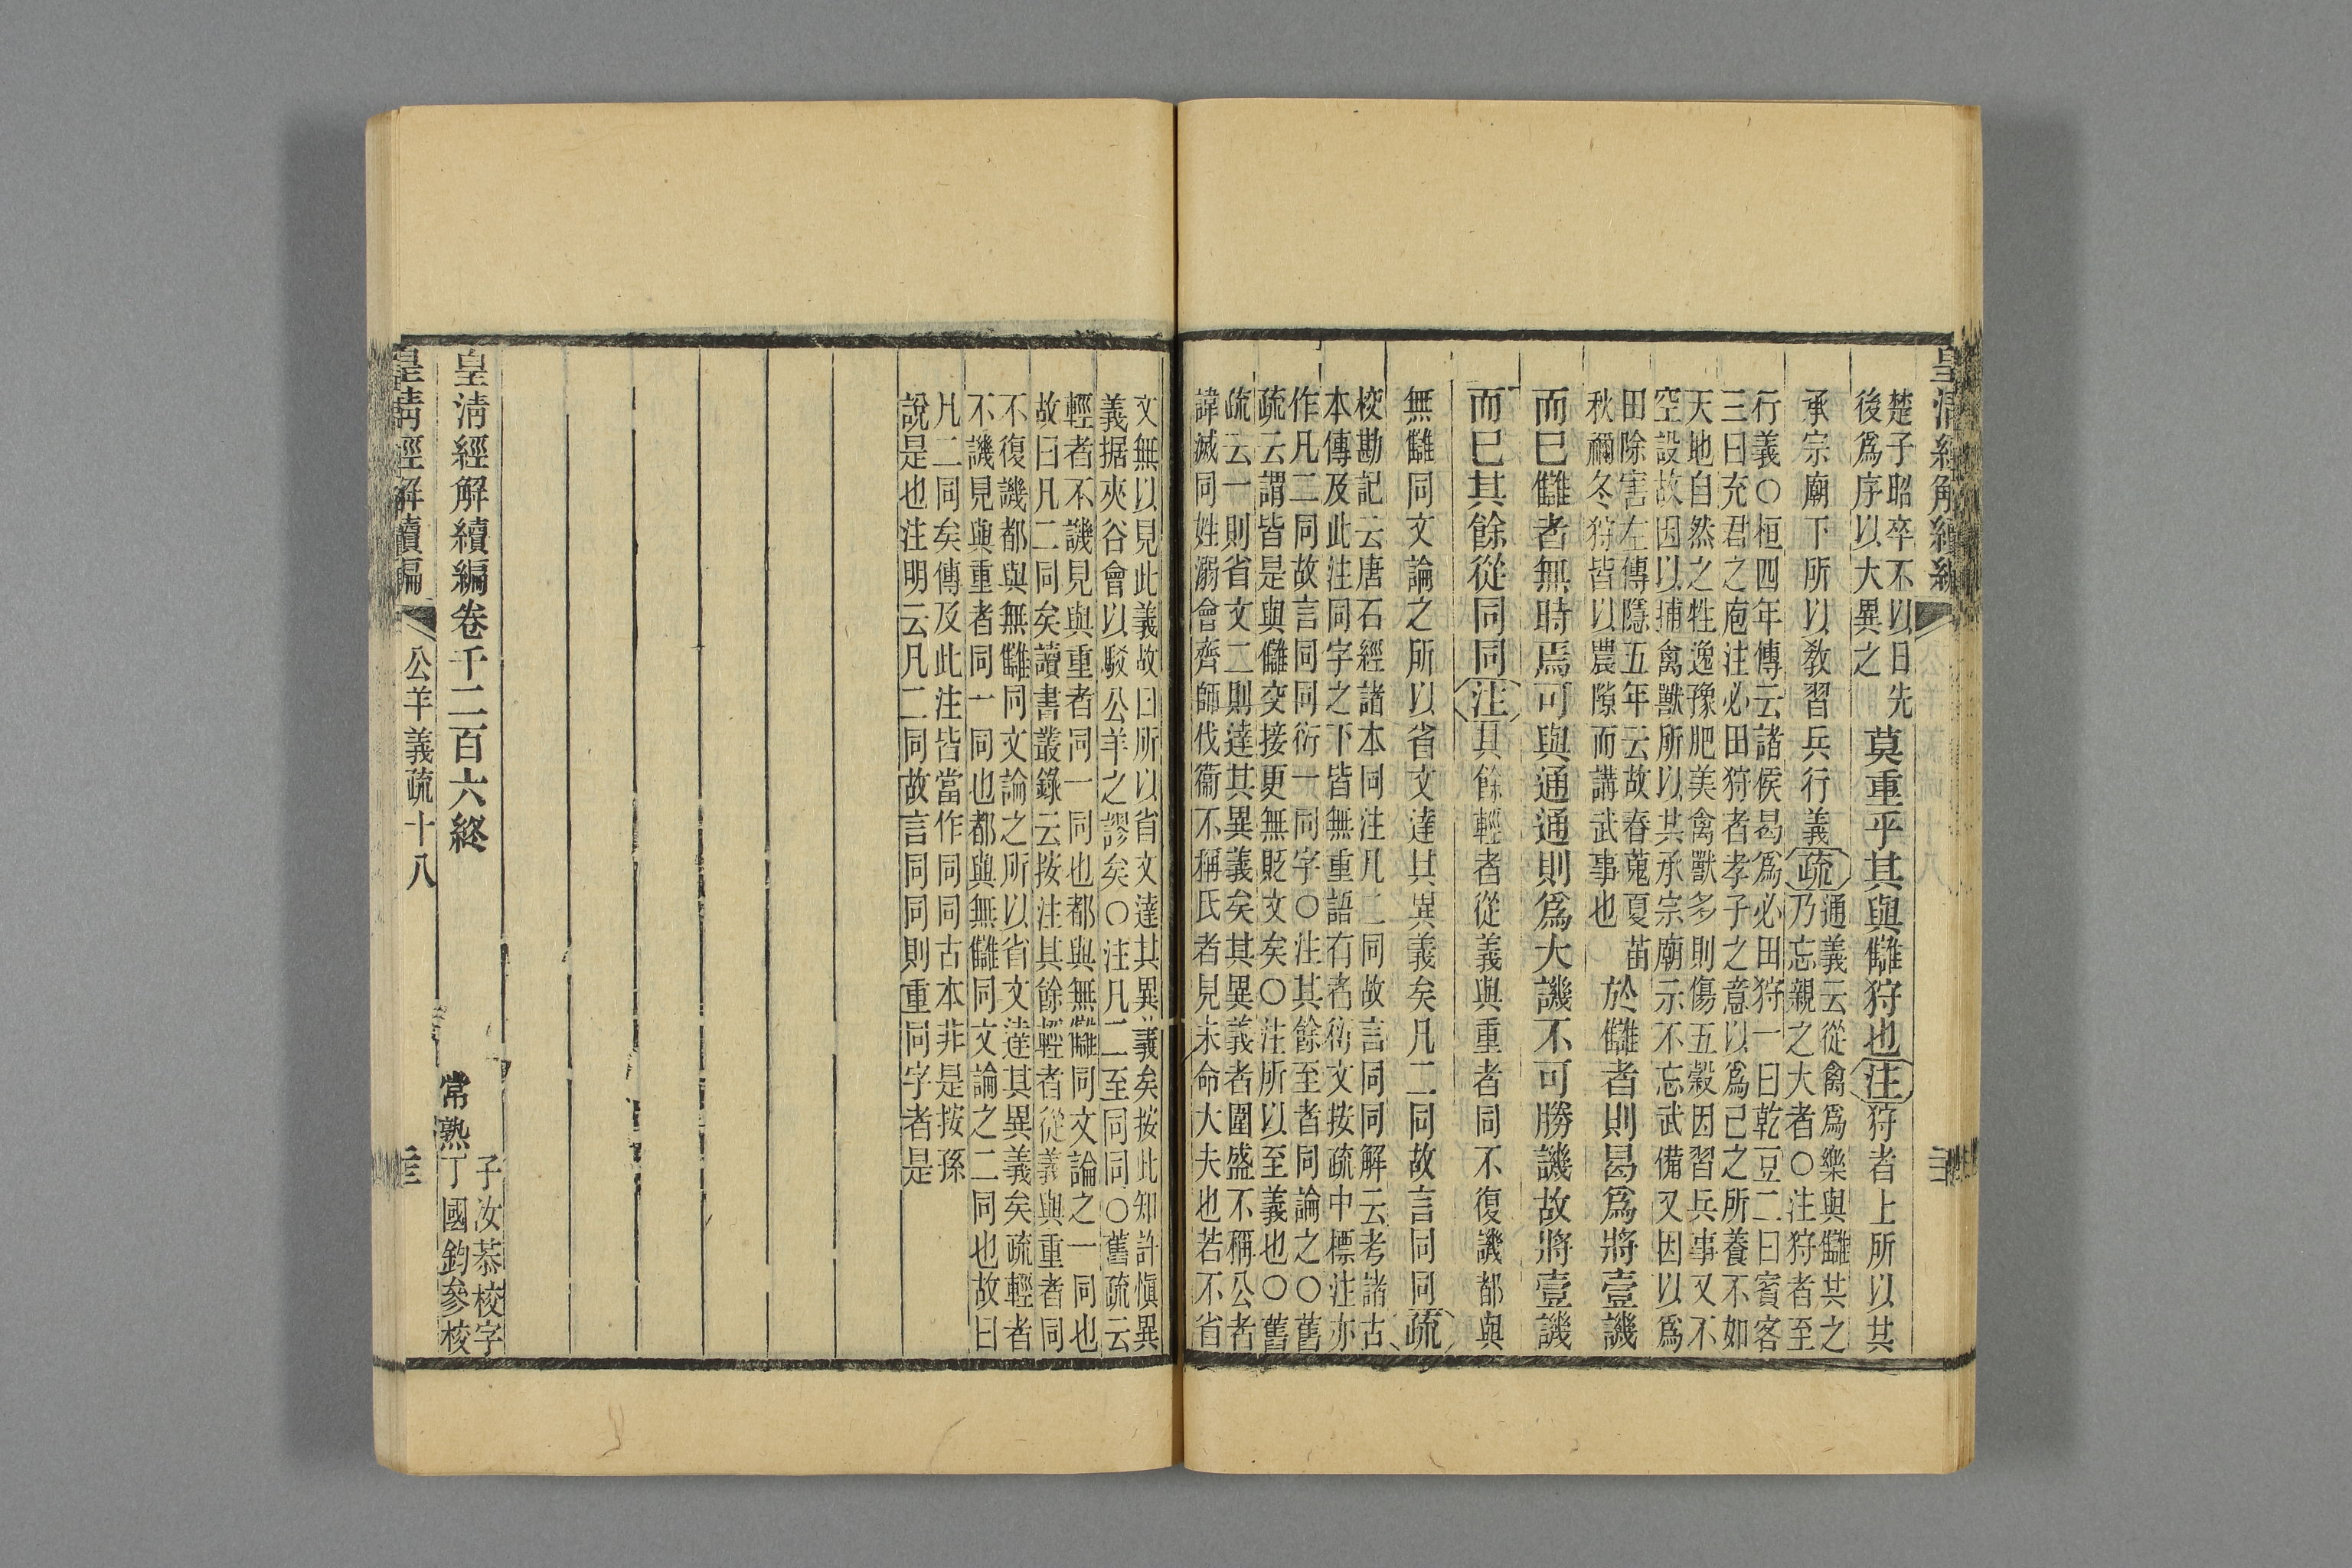 皇清經解續編
楚子昭卒不以日先
後爲序以大異之
莫重乎其與讎狩也注狩者上所以共
承宗廟下所以敎習兵行義疏
通義云從禽爲樂與讎共之
乃忘親之大者○注狩者至
行義○桓四年傳云諸侯曷爲必田狩一曰乾豆二曰賓客
三曰充君之庖注必田狩者孝子之意以爲己之所養不如
天地自然之牲逸豫肥美禽獸多則傷五穀因習兵事又不
空設故因以捕禽獸所以共承宗廟示不忘武備又因以爲
田除害左傳隱五年云故春蒐夏苗
秋獮冬狩皆以農隙而講武事也
於讎者則曷爲將壹譏
而已讎者無時焉可與通通則爲大譏不可勝譏故將壹譏
而已其餘從同同注其餘輕者從義與重者同不復譏都與
無讎同文論之所以省文達其異義矣凡二同故言同同疏
校勘記云唐石經諸本同注凡二同故言同同解云考諸古
本傳及此注同字之下皆無重語有者衍文按疏中標注亦
作凡二同故言同同衍一同字○注其餘至者同論之○舊
疏云謂皆是與讎交接更無貶文矣○注所以至義也○舊
疏云一則省文二則達其異義矣其異義者圍盛不稱公者
諱滅同姓溺會齊師伐衞不稱氏者見未命大夫也若不省
文無以見此義故曰所以省文達其異義矣按此知許愼異
義据夾谷會以駁公羊之謬矣○注凡二至同同○舊疏云
輕者不譏見與重者同一同也都與無讎同文論之一同也
故曰凡二同矣讀書叢錄云按注其餘輕者從義與重者同
不復譏都與無讎同文論之所以省文達其異義矣疏輕者
不譏見與重者同一同也都與無讎同文論之二同也故曰
凡二同矣傳及此注皆當作同同古本非是按孫
說是也注明云凡二同故言同同則重同字者是
皇清經解續編卷千二百六終
常熟
子汝恭校字
丁國鈞參校
皇清經解續編
公羊義疏十八